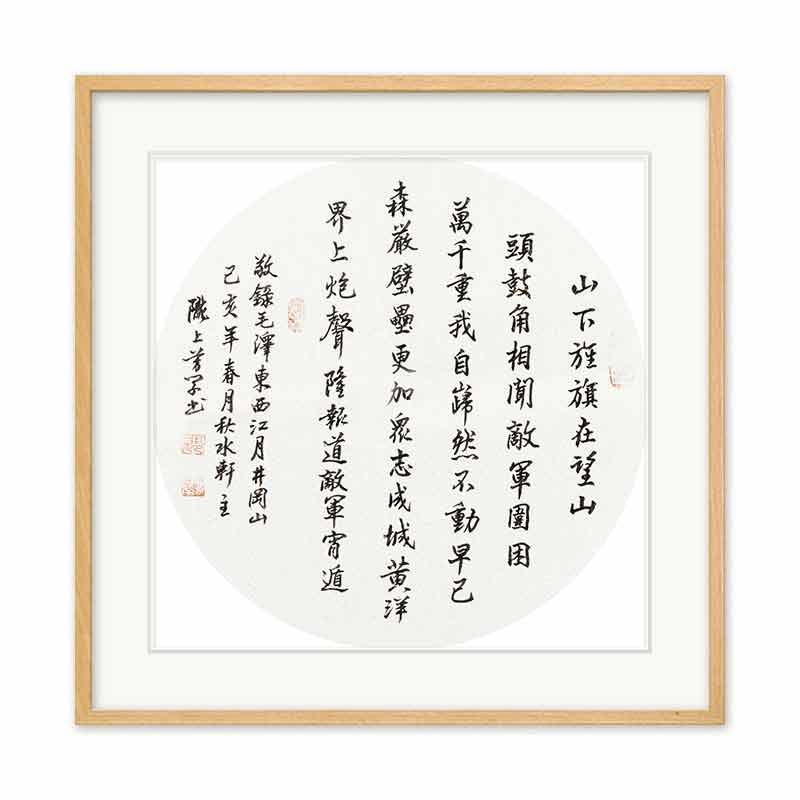 山下旌旗在望山
頭鼓角相聞敵軍圍困
萬千重我自巋然不動早已
森嚴壁壘更加衆志成城黄洋
界上炮聲隆報道敵軍宵遁
敬錄毛澤東西江月井岡山
己亥年春月秋水軒主
隴上芳學書